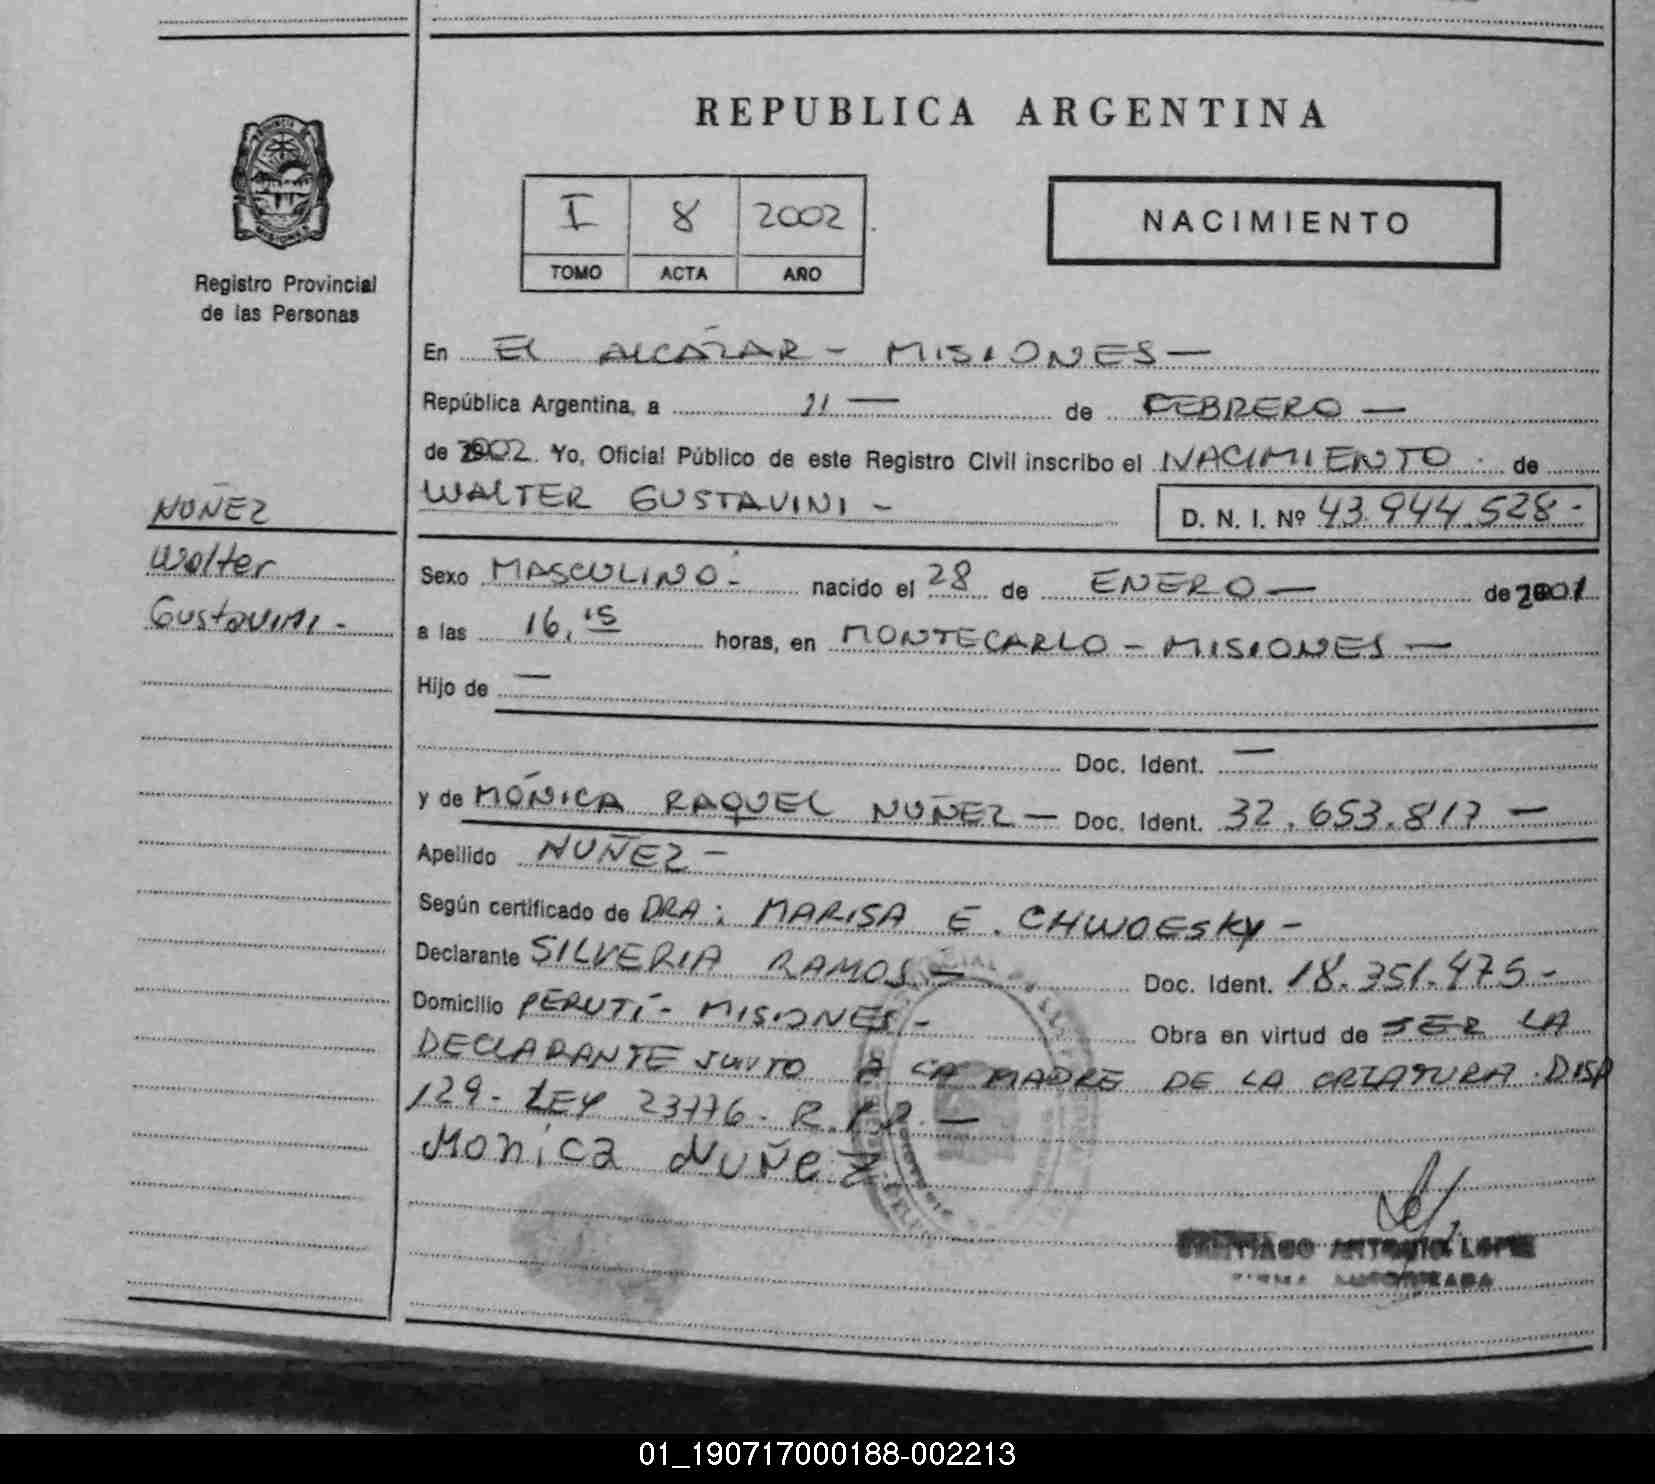 REPUBLICA ARGENTINA
PROVINCIA DE
MISIONES
Registro Provincial
de las Personas
I 8 2002
TOMO ACTA AÑO
NACIMIENTO
En EL ALCÁZAR - MISIONES -
República Argentina, a 21 - de FEBRERO -
de 2002. Yo, Oficial Público de este Registro Civil inscribo el NACIMIENTO de
WALTER GUSTAVINI - D. N. I. Nº 43.944.528 -
NUÑEZ
Walter
Gustavini -
Sexo MASCULINO - nacido el 28 de ENERO - de 2001
a las 16,15 horas, en MONTECARLO - MISIONES -
Hijo de -
Doc. Ident. -
y de MÓNICA RAQUEL NUÑEZ - Doc. Ident. 32.653.817 -
Apellido NUÑEZ -
Según certificado de DRA: MARISA E. CHWOESKY -
Declarante SILVERIA RAMOS - Doc. Ident. 18.351.475 -
Domicilio PERUTÍ - MISIONES - Obra en virtud de SER LA
DECLARANTE JUNTO A LA MADRE DE LA CRIATURA. DISP
129 - LEY 23776 - R.P.P. -
Monica Nuñez
SANTIAGO ANTONIO LOPEZ
FIRMA AUTORIZADA
01_190717000188-002213